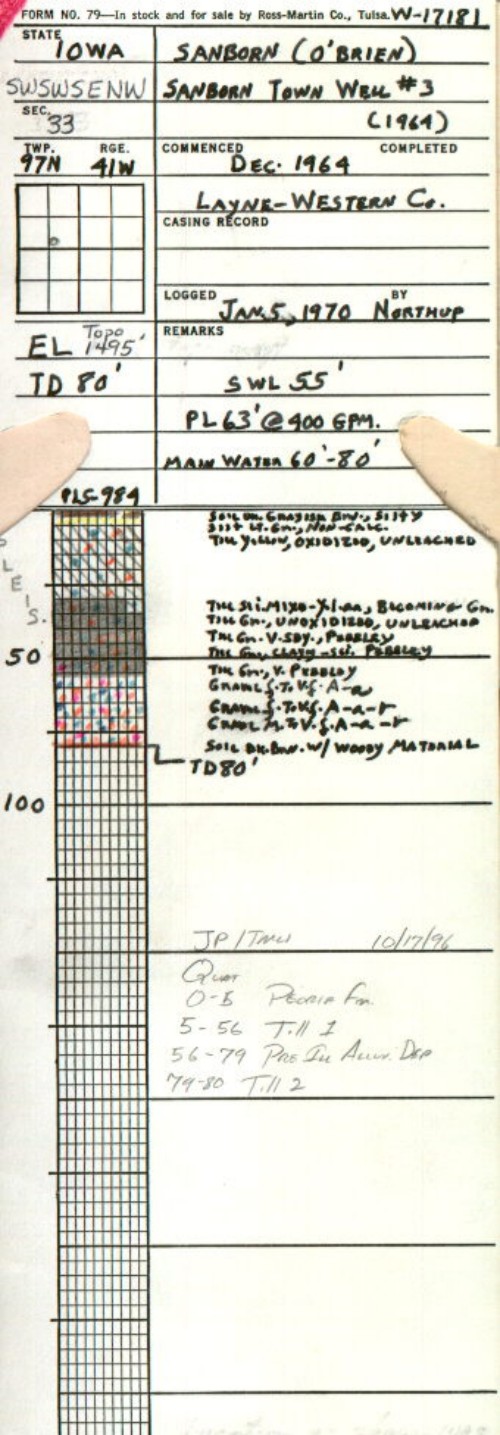 FORM NO. 79—In stock and for sale by Ross-Martin Co., Tulsa. W-17181
STATE
IOWA
SANBORN (O'BRIEN)
SWSWSENW
SANBORN TOWN WELL #3
SEC.
33
(1964)
TWP. RGE.
97N 41W
COMMENCED COMPLETED
DEC. 1964
LAYNE-WESTERN Co.
CASING RECORD
LOGGED BY
JAN. 5, 1970 NORTHUP
EL Topo 1495'
REMARKS
TD 80'
SWL 55'
PL 63' @ 400 GPM.
MAIN WATER 60'-80'
PLS-984
SOIL DK. GRAYISH BRN., SILTY
SILT LT. GN., NON-CALC.
TILL YELLOW, OXIDIZED, UNLEACHED
L
E
S.
TILL SLI. MIXD-YL-GN, BECOMING GN.
TILL GN., UNOXIDIZED, UNLEACHED
TILL GN. V. SDY., PEBBLEY
50
TILL GN, CLAYEY-SLI. PEBBLEY
TILL GN., V. PEBBLEY
GRAVEL f. TO V.f. A-a
GRAVEL f. TO V.f. A-a-r
GRAVEL M. TO V.f. A-a-r
SOIL DK. BRN. W/ WOODY MATERIAL
TD 80'
100
JP/TMW 10/17/96
Quat
0-5 Peoria Fm.
5-56 Till 1
56-79 Pre Ill Alluv. Dep
79-80 Till 2